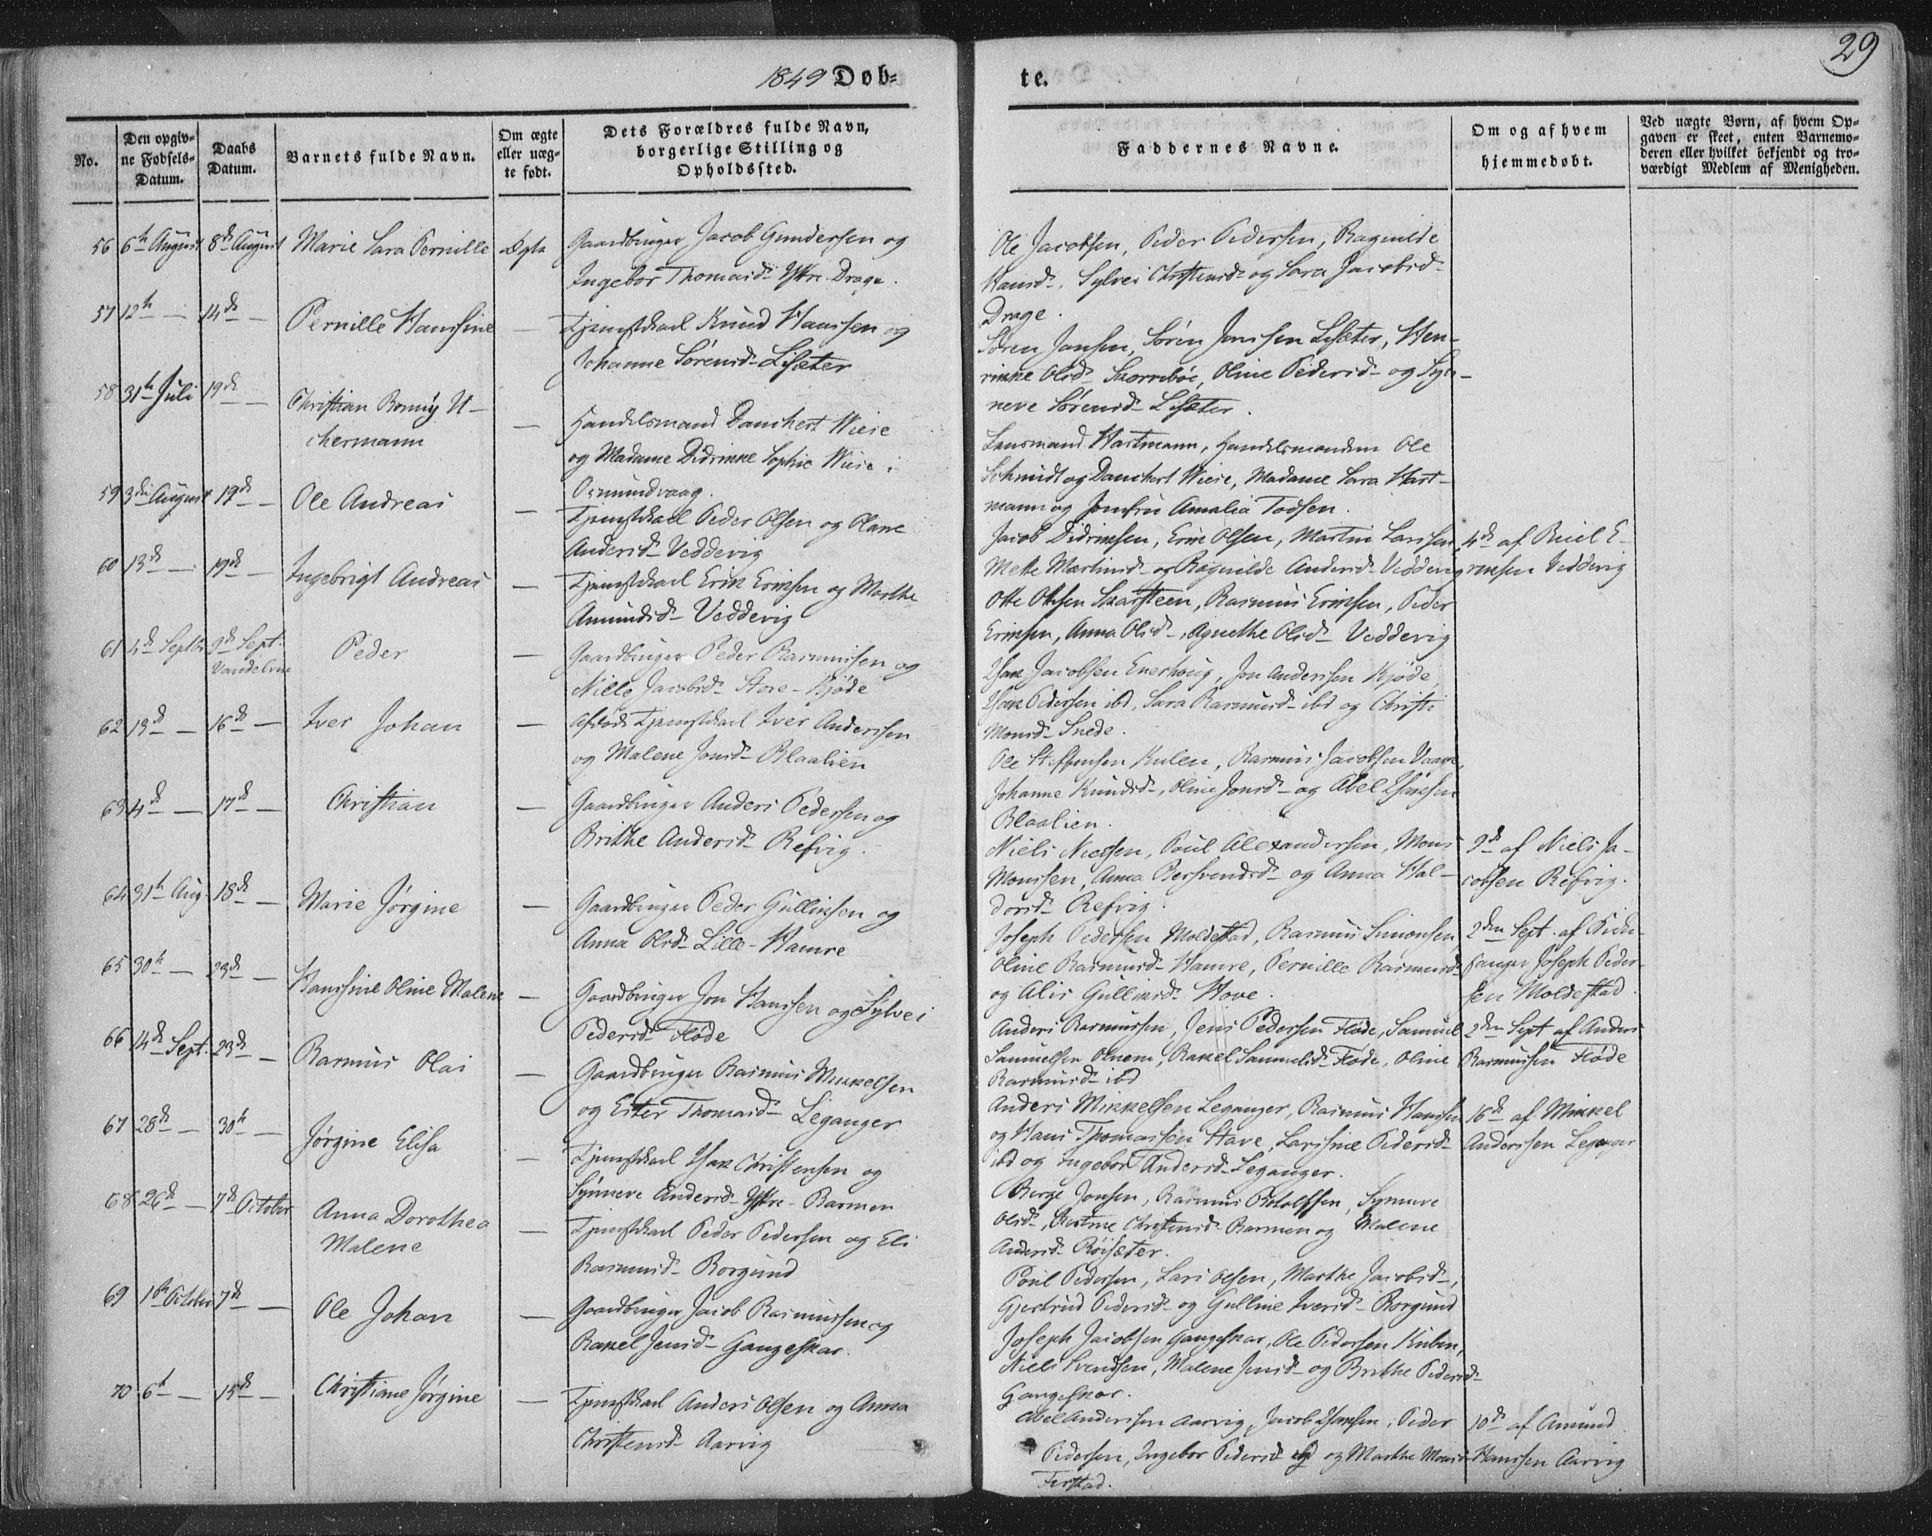 1849 Døb=
te.
29
No.
Den opgiv-
ne Fødsels-
Datum.
Daabs
Datum.
Barnets fulde Navn.
Om ægte
eller uæg-
te født.
Dets Forældres fulde Navn,
borgerlige Stilling og
Opholdssted.
Faddernes Navne.
Om og af hvem
hjemmedøbt.
Ved uægte Børn, af hvem Op-
gaven er skeet, enten Barnemo-
deren eller hvilket bekjendt og tro-
værdigt Medlem af Menigheden.
56 6th August 8de August Marie Sara Pernille Ægte Gaardbruger Jacob Gundersen og
Ingebor Thomasd- Yttre Drage.
Ole Jacobsen, Peder Pedersen, Ragnilde
Hansd-, Sylvei Christensd- og Sara Jacobsd-
Drage.
57 12th — 14de — Pernille Hansine — Tjenestkarl Knud Hansen og
Johanne Sørensd- Lisæter
Søren Jansen, Søren Jonsen Lisæter, Hen-
rikke Olsd- Skorrebøe, Oline Pedersd- og Syn-
neve Sørensd- Lisæter.
58 31th Juli 19de — Christian Romüs U-
chermann — Handelsmand Danchert Wiese
og Madame Didrikke Sophie Wiese i
Osmundvaag.
Lensmand Hartmann, Handelsmanden Ole
Schmidt og Danchert Wiese, Madame Sara Hart-
mann og Jomfru Amalia Todsen.
59 3die August 19de — Ole Andreas — Tjenestkarl Peder Olsen og Olane
Andersd- Veddevig
Jacob Didriksen, Erik Olsen, Martin Larsen
Mette Martinsd- og Ragnilde Andersd- Veddevig
4de af Poul E-
riksen Veddevig
60 13de — 19de — Ingebrigt Andreas — Tjenestkarl Erik Eriksen og Marthe
Amundsd- Veddevig
Otte Olsen Skarsteen, Rasmus Eriksen, Peder
Eriksen, Anna Olsd-, Agnethe Olsd- Veddevig
61 4de Septbr 9de Sept.
Vandelven Peder — Gaardbruger Peder Rasmussen og
Nille Jacobsd- Store-Kjøde
Isak Jacobsen Enerhoug, Jon Andersen Kjøde,
Isak Pedersen ibd, Sara Rasmusd- ibd og Christi
Monsd- Snede.
62 13de — 16de — Iver Johan — Afdøde Tjenestkarl Iver Andersen
og Malene Jonsd- Blaalien
Ole Steffensen Kulen, Rasmus Jacobsen Vaage,
Johanne Knudsd-, Oline Jonsd- og Abel Isaksen
Blaalien.
63 4de — 17de — Christian — Gaardbruger Anders Pedersen og
Brithe Andersd- Refvig.
Niels Nielsen, Poul Alexandersen, Mons
Monssen, Anna Persvendsd- og Anna Hal-
dorsd- Refvig.
9de af Niels Ja-
cobsen Refvig.
64 31th Aug. 18de — Marie Jørgine — Gaardbruger Peder Gulliksen og
Anna Olsd- Lille-Hamre
Joseph Pedersen Moldestad, Rasmus Simonsen
Oline Rasmusd- Hamre, Pernille Rasmusd-
og Alis Gulliksd- Hove.
2den Sept. af Kirke-
sanger Joseph Peder-
sen Moldestad.
65 30th — 23de — Hansine Oline Malene — Gaardbruger Jon Hansen og Sylvei
Pedersd- Fløde
Anders Rasmussen, Jens Pedersen Fløde, Samuel
Samuelsen Osnem, Rakel Samuelsd- Fløde, Oline
Rasmusd- ibd
2den Sept af Anders
Rasmussen Fløde
66 14de Sept. 23de — Rasmus Olai — Gaardbruger Rasmus Mikkelsen
og Ester Thomasd- Leganger
Anders Mikkelsen Leganger, Rasmus Hansen
og Hans Thomassen Stave, Larsine Pedersd-
ibd og Ingebor Andersd- Leganger.
16de af Mikkel
Andersen Leganger
67 28de — 30th — Jørgine Elisa — Tjenestkarl Isak Christensen og
Synneve Andersd- Yttre-Barmen
Børge Jonsen, Rasmus Rotolfsen, Synneve
Olsd-, Kirstine Christensd- Barmen og Malene
Andersd- Røisæter.
68 26de — 7de October Anna Dorothea
Malene — Tjenestkarl Peder Pedersen og Eli
Rasmusd- Borgund
Poul Pedersen, Lars Olsen, Marthe Jacobsd-,
Gjertrud Pedersd- og Gulline Iversd- Borgund
69 1ste October 7de — Ole Johan — Gaardbruger Jacob Rasmussen og
Rakel Jensd- Gangeskar.
Joseph Jacobsen Gangeskar, Ole Pedersen Kuben,
Niels Svendsen, Malene Jensd- og Brithe Pedersd-
Gangeskar.
70 6t — 15de — Christiane Jørgine — Tjenestkarl Anders Olsen og Anna
Christensd- Aarvig
Abel Andersen Aarvig, Jacob Isaksen, Peder
Pedersen, Ingebor Pedersd ibd og Marthe Monsd-
Ferstad.
10de af Amund
Hansen Aarvig